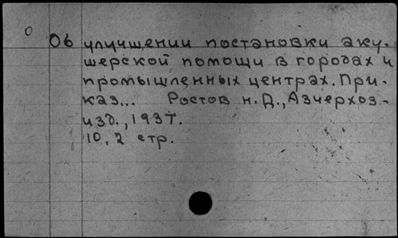 Об улучшении постановки аку-
шерской помощи в городах и
промышленных центрах. При-
каз... Ростов н.Д., Азчерхоз-
изд., 1937.
10, 2 стр.